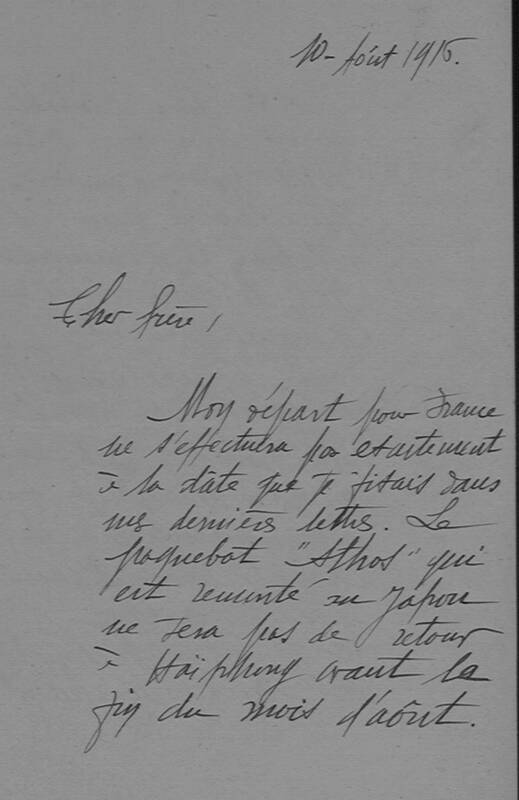 10 - Août 1915.
Cher frère,
Mon départ pour France
ne s'effectura pas exactement
à la date que je fixais dans
mes dernières lettres. Le
paquebot "Athos" qui
est remonté au Japon
ne sera pas de retour
à Haïphong avant la
fin du mois d'août.